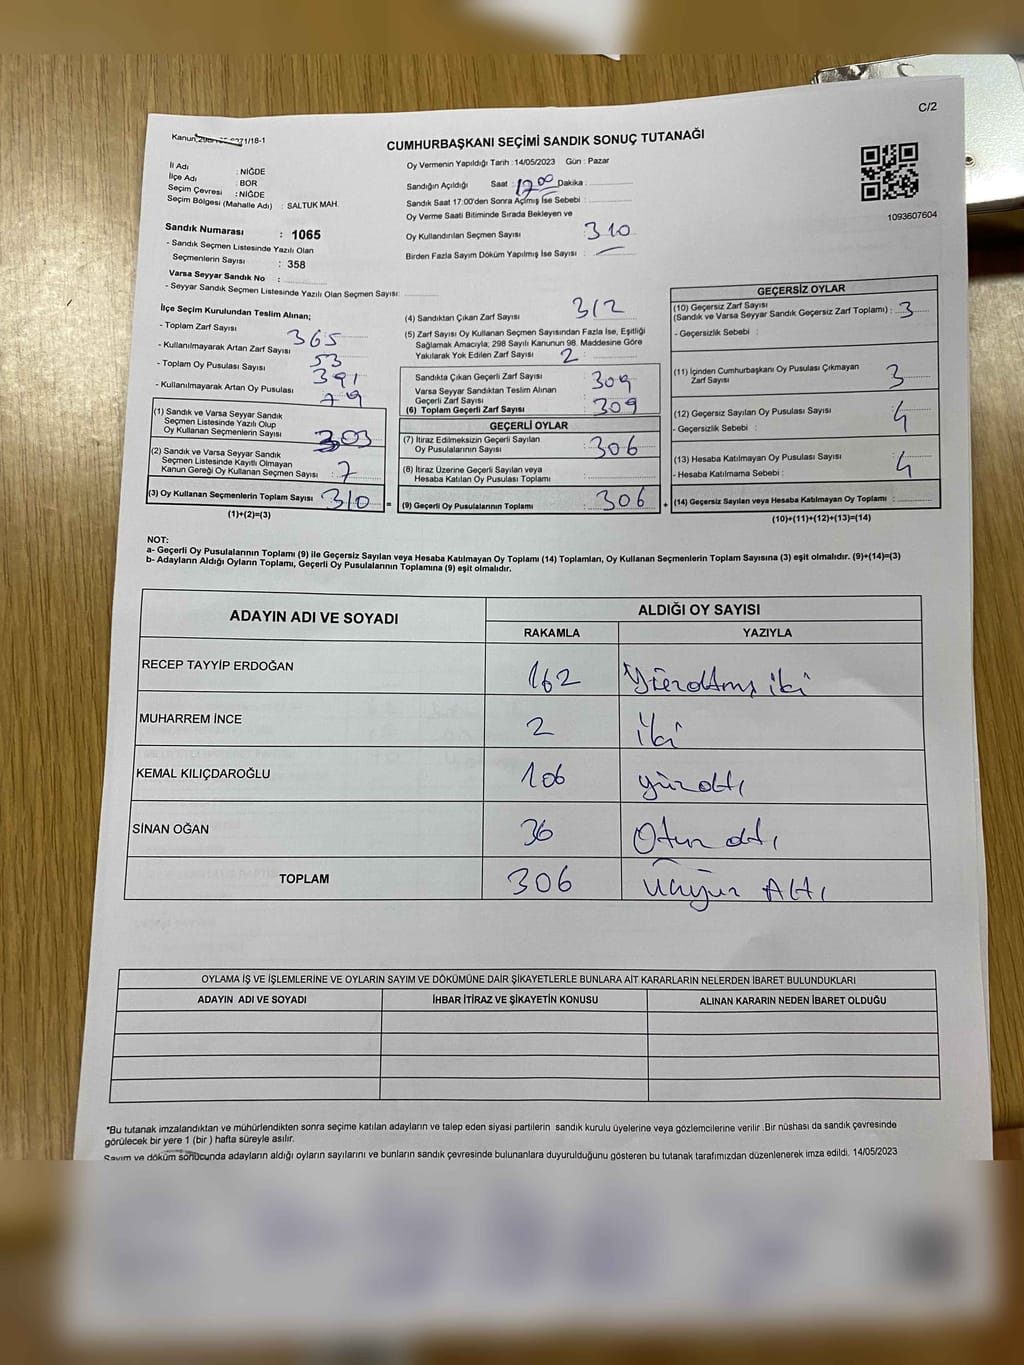 C/2
Kanun:
/18-1
CUMHURBAŞKANI SEÇİMİ SANDIK SONUÇ TUTANAĞI
İl Adı : NİĞDE
İlçe Adı : BOR
Seçim Çevresi : NİĞDE
Seçim Bölgesi (Mahalle Adı) : SALTUK MAH.
Sandık Numarası : 1065
- Sandık Seçmen Listesinde Yazılı Olan
Seçmenlerin Sayısı : 358
Varsa Seyyar Sandık No :
- Seyyar Sandık Seçmen Listesinde Yazılı Olan Seçmen Sayısı:
Oy Vermenin Yapıldığı Tarih :14/05/2023 Gün : Pazar
Sandığın Açıldığı Saat : 17 00 Dakika :
Sandık Saat 17:00'den Sonra Açılmış İse Sebebi :
Oy Verme Saati Bitiminde Sırada Bekleyen ve
Oy Kullandırılan Seçmen Sayısı : 310
Birden Fazla Sayım Döküm Yapılmış İse Sayısı :
1093607604
İlçe Seçim Kurulundan Teslim Alınan;
- Toplam Zarf Sayısı 365
- Kullanılmayarak Artan Zarf Sayısı 53
- Toplam Oy Pusulası Sayısı 391
- Kullanılmayarak Artan Oy Pusulası 79
(1) Sandık ve Varsa Seyyar Sandık
Seçmen Listesinde Yazılı Olup
Oy Kullanan Seçmenlerin Sayısı : 303
(2) Sandık ve Varsa Seyyar Sandık
Seçmen Listesinde Kayıtlı Olmayan
Kanun Gereği Oy Kullanan Seçmen Sayısı : 7
(3) Oy Kullanan Seçmenlerin Toplam Sayısı : 310
(1)+(2)=(3)
(4) Sandıktan Çıkan Zarf Sayısı 312
(5) Zarf Sayısı Oy Kullanan Seçmen Sayısından Fazla İse, Eşitliği
Sağlamak Amacıyla; 298 Sayılı Kanunun 98. Maddesine Göre
Yakılarak Yok Edilen Zarf Sayısı 2
Sandıkta Çıkan Geçerli Zarf Sayısı : 309
Varsa Seyyar Sandıktan Teslim Alınan
Geçerli Zarf Sayısı
(6) Toplam Geçerli Zarf Sayısı : 309
GEÇERLİ OYLAR
(7) İtiraz Edilmeksizin Geçerli Sayılan
Oy Pusulalarının Sayısı : 306
(8) İtiraz Üzerine Geçerli Sayılan veya
Hesaba Katılan Oy Pusulası Toplamı :
= (9) Geçerli Oy Pusulalarının Toplamı : 306 +
GEÇERSİZ OYLAR
(10) Geçersiz Zarf Sayısı
(Sandık ve Varsa Seyyar Sandık Geçersiz Zarf Toplamı) : 3
- Geçersizlik Sebebi :
(11) İçinden Cumhurbaşkanı Oy Pusulası Çıkmayan
Zarf Sayısı 3
(12) Geçersiz Sayılan Oy Pusulası Sayısı : 4
- Geçersizlik Sebebi :
(13) Hesaba Katılmayan Oy Pusulası Sayısı : 4
- Hesaba Katılmama Sebebi :
(14) Geçersiz Sayılan veya Hesaba Katılmayan Oy Toplamı :
(10)+(11)+(12)+(13)=(14)
NOT:
a- Geçerli Oy Pusulalarının Toplamı (9) ile Geçersiz Sayılan veya Hesaba Katılmayan Oy Toplamı (14) Toplamları, Oy Kullanan Seçmenlerin Toplam Sayısına (3) eşit olmalıdır. (9)+(14)=(3)
b- Adayların Aldığı Oyların Toplamı, Geçerli Oy Pusulalarının Toplamına (9) eşit olmalıdır.
ADAYIN ADI VE SOYADI
ALDIĞI OY SAYISI
RAKAMLA YAZIYLA
RECEP TAYYİP ERDOĞAN 162 Yüzaltmış iki
MUHARREM İNCE 2 iki
KEMAL KILIÇDAROĞLU 106 yüzaltı
SİNAN OĞAN 36 Otuz altı
TOPLAM 306 Üçyüz Altı
OYLAMA İŞ VE İŞLEMLERİNE VE OYLARIN SAYIM VE DÖKÜMÜNE DAİR ŞİKAYETLERLE BUNLARA AİT KARARLARIN NELERDEN İBARET BULUNDUKLARI
ADAYIN ADI VE SOYADI İHBAR İTİRAZ VE ŞİKAYETİN KONUSU ALINAN KARARIN NEDEN İBARET OLDUĞU
*Bu tutanak imzalandıktan ve mühürlendikten sonra seçime katılan adayların ve talep eden siyasi partilerin sandık kurulu üyelerine veya gözlemcilerine verilir .Bir nüshası da sandık çevresinde
görülecek bir yere 1 (bir ) hafta süreyle asılır.
Sayım ve döküm sonucunda adayların aldığı oyların sayılarını ve bunların sandık çevresinde bulunanlara duyurulduğunu gösteren bu tutanak tarafımızdan düzenlenerek imza edildi. 14/05/2023